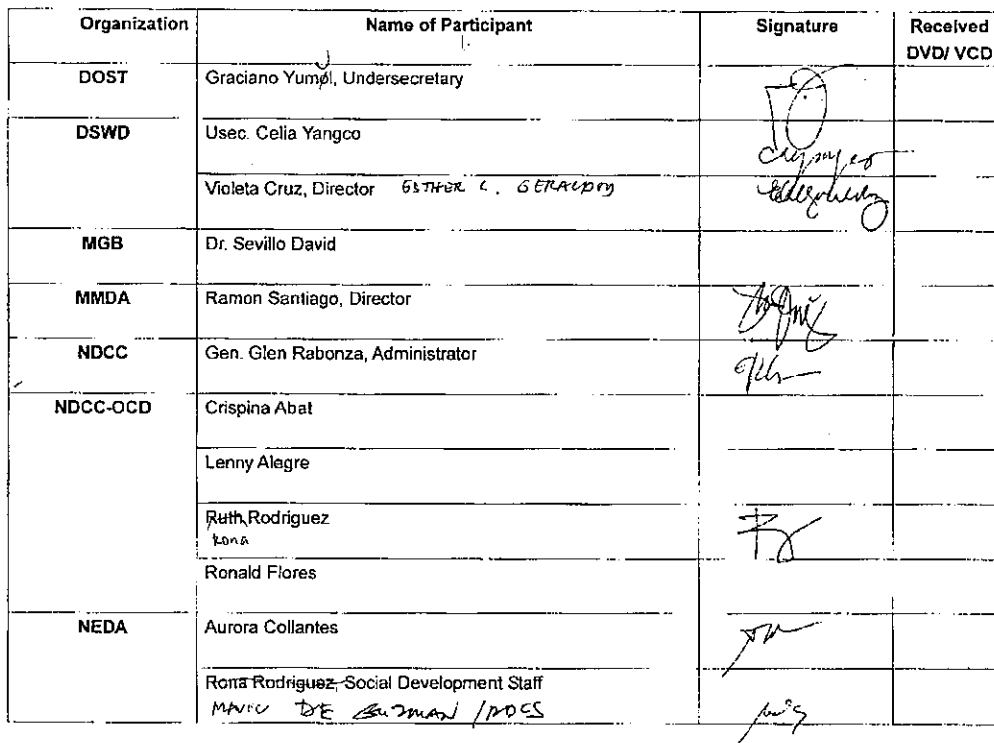 Organization Name of Participant Signature Received DVD/ VCD
DOST Graciano Yumol, Undersecretary
DSWD Usec. Celia Yangco
Violeta Cruz, Director ESTHER L. GERALDOY
MGB Dr. Sevillo David
MMDA Ramon Santiago, Director
NDCC Gen. Glen Rabonza, Administrator
NDCC-OCD Crispina Abat
Lenny Alegre
Ruth Rodriguez
Rona
Ronald Flores
NEDA Aurora Collantes
Rona Rodriguez, Social Development Staff
DE GUZMAN